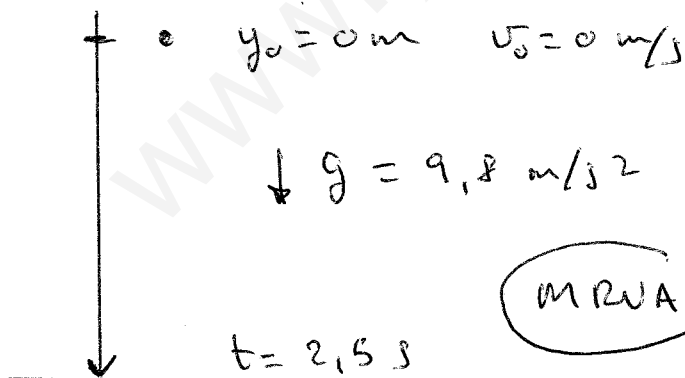 y₀ = 0 m v₀ = 0 m/s
↓ g = 9,8 m/s2
MRUA
t = 2,5 s